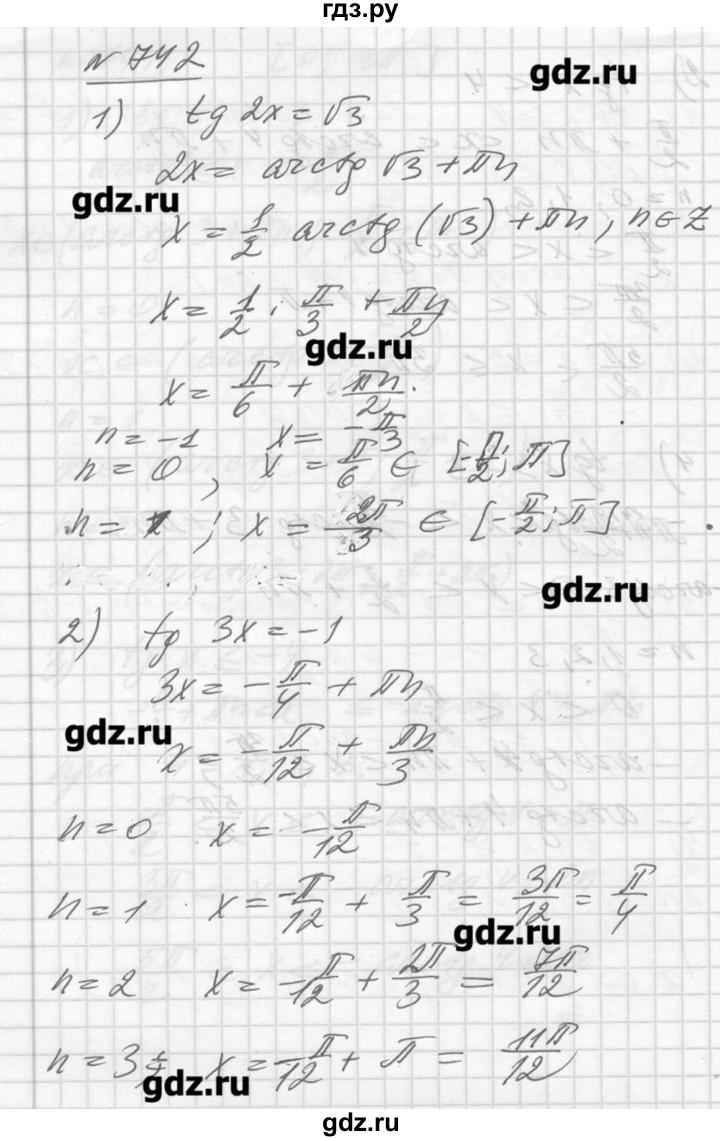 гдз.ру
№ 742
gdz.ru
1) tg 2x = √3
2x = arctg √3 + πn
gdz.ru
x = 1/2 arctg (√3) + πn, n ∈ Z
x = 1/2 · π/3 + πn/2
gdz.ru
x = π/6 + πn/2.
n = -1 x = -π/3
n = 0, x = π/6 ∈ [-π/2; π]
n = 1; x = 2π/3 ∈ [-π/2; π]
gdz.ru
2) tg 3x = -1
3x = -π/4 + πn
gdz.ru
x = -π/12 + πn/3
n = 0 x = -π/12
n = 1 x = -π/12 + π/3 = 3π/12 = π/4
gdz.ru
n = 2 x = -π/12 + 2π/3 = 7π/12
n = 3 x = -π/12 + π = 11π/12
gdz.ru
gdz.ru